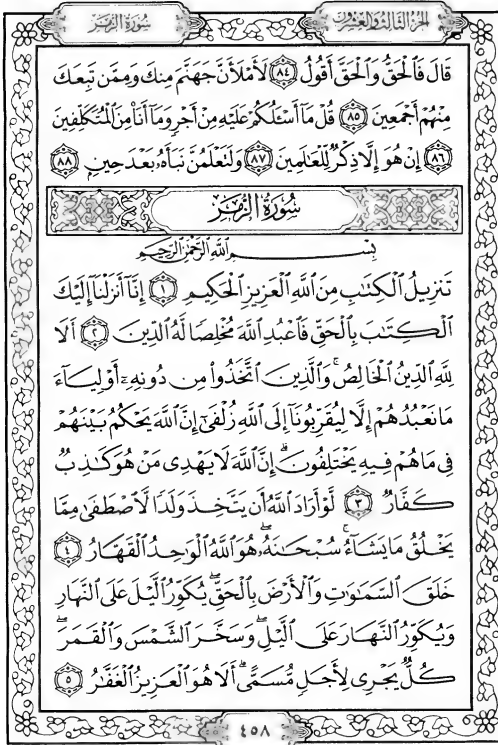 سُورَةُ الزُّمَرِ
الجزء الثالث والعشرون
قَالَ فَٱلْحَقُّ وَٱلْحَقَّ أَقُولُ ٨٤ لَأَمْلَأَنَّ جَهَنَّمَ مِنكَ وَمِمَّن تَبِعَكَ
مِنْهُمْ أَجْمَعِينَ ٨٥ قُلْ مَآ أَسْـَٔلُكُمْ عَلَيْهِ مِنْ أَجْرٍ وَمَآ أَنَا۠ مِنَ ٱلْمُتَكَلِّفِينَ
٨٦ إِنْ هُوَ إِلَّا ذِكْرٌ لِّلْعَـٰلَمِينَ ٨٧ وَلَتَعْلَمُنَّ نَبَأَهُۥ بَعْدَ حِينٍۭ ٨٨
سُورَةُ الزُّمَرِ
بِسْمِ ٱللَّهِ ٱلرَّحْمَـٰنِ ٱلرَّحِيمِ
تَنزِيلُ ٱلْكِتَـٰبِ مِنَ ٱللَّهِ ٱلْعَزِيزِ ٱلْحَكِيمِ ١ إِنَّآ أَنزَلْنَآ إِلَيْكَ
ٱلْكِتَـٰبَ بِٱلْحَقِّ فَٱعْبُدِ ٱللَّهَ مُخْلِصًا لَّهُ ٱلدِّينَ ٢ أَلَا
لِلَّهِ ٱلدِّينُ ٱلْخَالِصُ ۚ وَٱلَّذِينَ ٱتَّخَذُوا۟ مِن دُونِهِۦٓ أَوْلِيَآءَ
مَا نَعْبُدُهُمْ إِلَّا لِيُقَرِّبُونَآ إِلَى ٱللَّهِ زُلْفَىٰٓ إِنَّ ٱللَّهَ يَحْكُمُ بَيْنَهُمْ
فِى مَا هُمْ فِيهِ يَخْتَلِفُونَ ۗ إِنَّ ٱللَّهَ لَا يَهْدِى مَنْ هُوَ كَـٰذِبٌ
كَفَّارٌ ٣ لَّوْ أَرَادَ ٱللَّهُ أَن يَتَّخِذَ وَلَدًا لَّٱصْطَفَىٰ مِمَّا
يَخْلُقُ مَا يَشَآءُ ۚ سُبْحَـٰنَهُۥ ۖ هُوَ ٱللَّهُ ٱلْوَٰحِدُ ٱلْقَهَّارُ ٤
خَلَقَ ٱلسَّمَـٰوَٰتِ وَٱلْأَرْضَ بِٱلْحَقِّ ۖ يُكَوِّرُ ٱلَّيْلَ عَلَى ٱلنَّهَارِ
وَيُكَوِّرُ ٱلنَّهَارَ عَلَى ٱلَّيْلِ ۖ وَسَخَّرَ ٱلشَّمْسَ وَٱلْقَمَرَ ۖ
كُلٌّ يَجْرِى لِأَجَلٍ مُّسَمًّى ۗ أَلَا هُوَ ٱلْعَزِيزُ ٱلْغَفَّـٰرُ ٥
٤٥٨